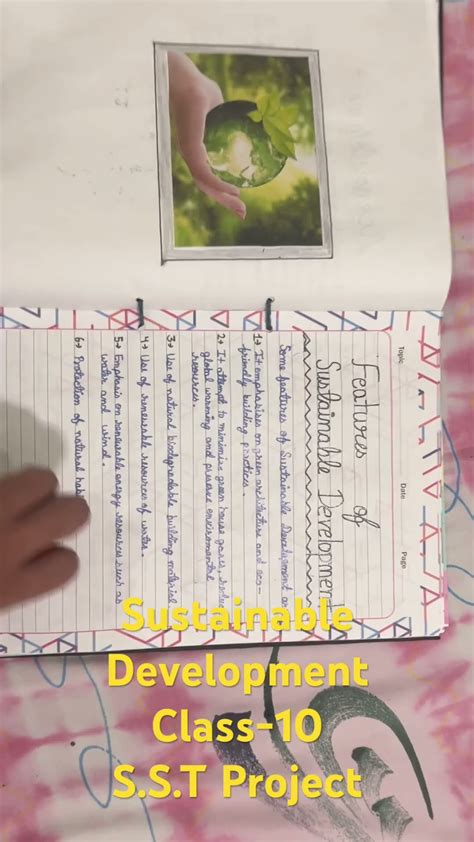 Topic
Date
Page
Features of
Sustainable Development
Some features of Sustainable Development
1→ It emphasises on green architecture and eco-
friendly building practices.
2→ It attempt to minimise green house gases,
global warming and preserve enviromental
resources.
3→ Use of natural biodegradable building material
4→ Use of renewable resources of water.
5→ Emphasis on renewable energy resources such as
water and wind.
6→ Protection of natural
Sustainable
Development
Class-10
S.S.T Project